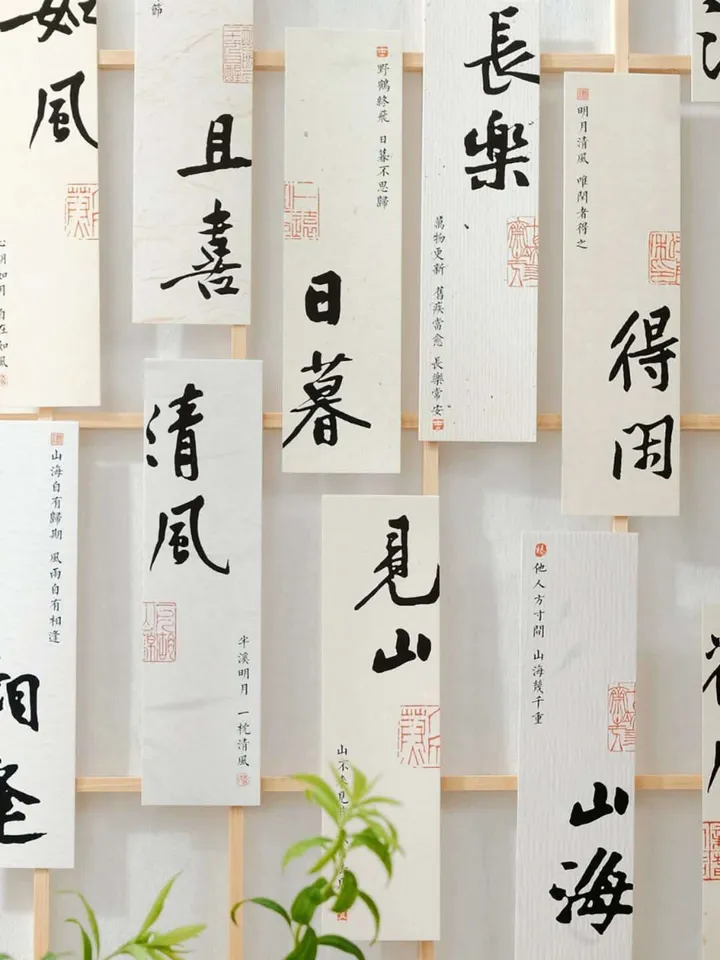 如風
節
且喜
野鶴終飛 日暮不思歸
日暮
長樂
萬物更新 舊疾當愈 長樂常安
明月清風 唯閑者得之
得閑
山海自有歸期 風雨自有相逢
相逢
清風
半溪明月 一枕清風
見山
山不來見
他人方寸間 山海幾千重
山海